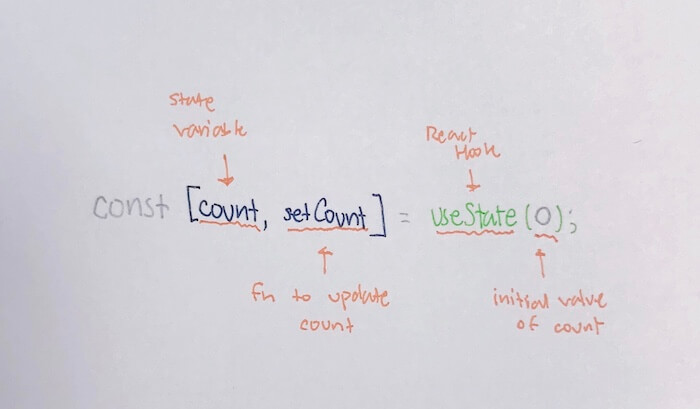 state
variable
React
Hook
const [count, setCount] = useState(0);
fn to update
count
initial value
of count